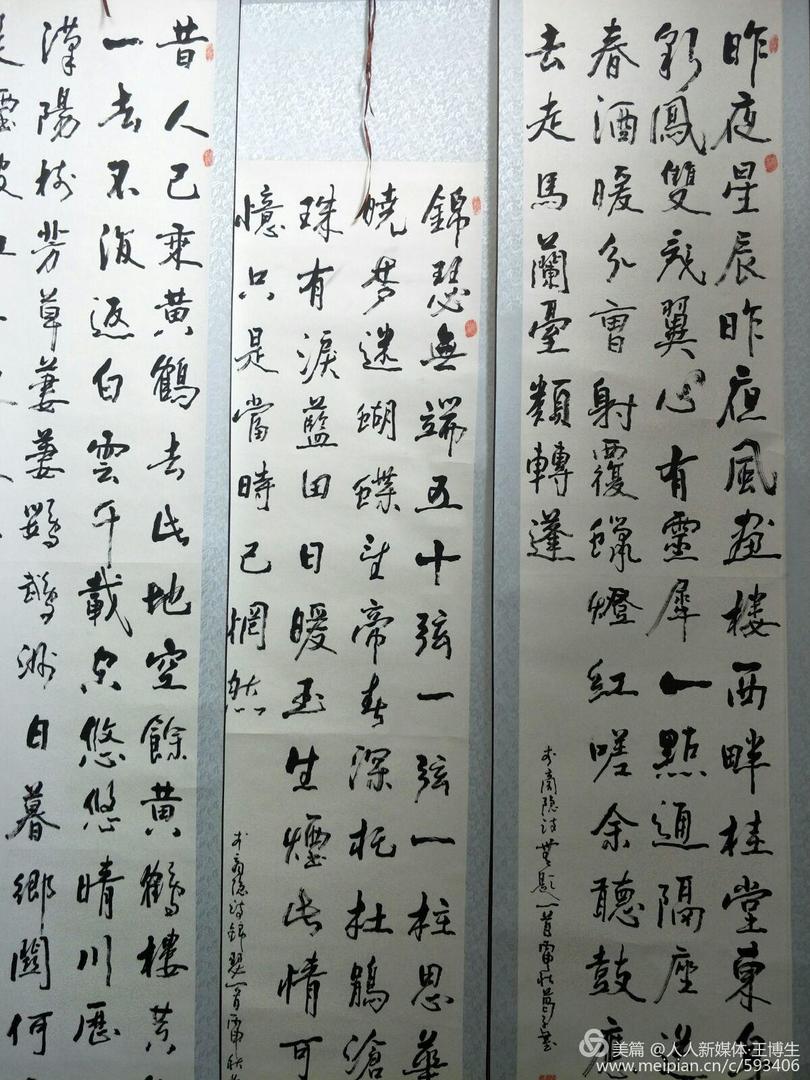 昨夜星辰昨夜風畫樓西畔桂堂東身
彩鳳雙飛翼心有靈犀一點通隔座送
春酒暖分曹射覆蠟燈紅嗟余聽鼓應
去走馬蘭臺類轉蓬
李商隱詩無題一首
錦瑟無端五十弦一弦一柱思華
曉夢迷蝴蝶望帝春深托杜鵑滄
珠有淚藍田日暖玉生煙此情可
憶只是當時已惘然
李商隱詩錦瑟一首
昔人已乘黃鶴去此地空餘黃鶴樓黃
一去不復返白雲千載空悠悠晴川歷
漢陽樹芳草萋萋鸚鵡洲日暮鄉關何
美篇 @人人新媒体·王博生
www.meipian.cn/c/593406